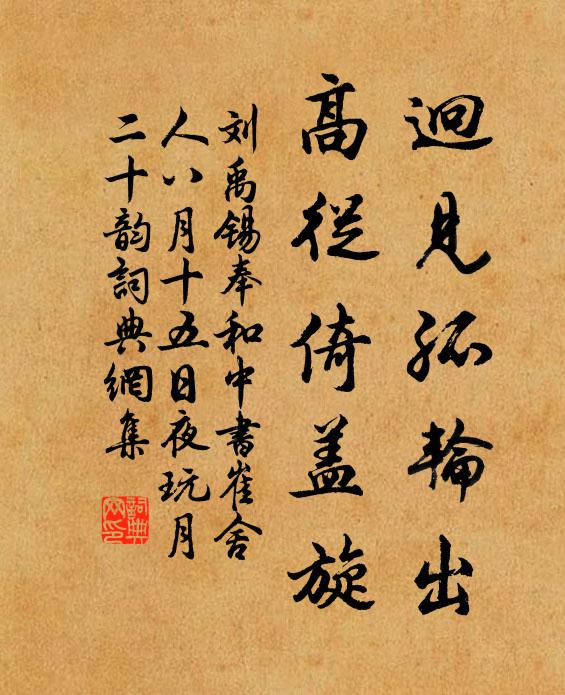 迥見孤輪出
高從倚蓋旋
刘禹锡奉和中書崔舍
人八月十五日夜玩月
二十韵詞典網集
詞典网印